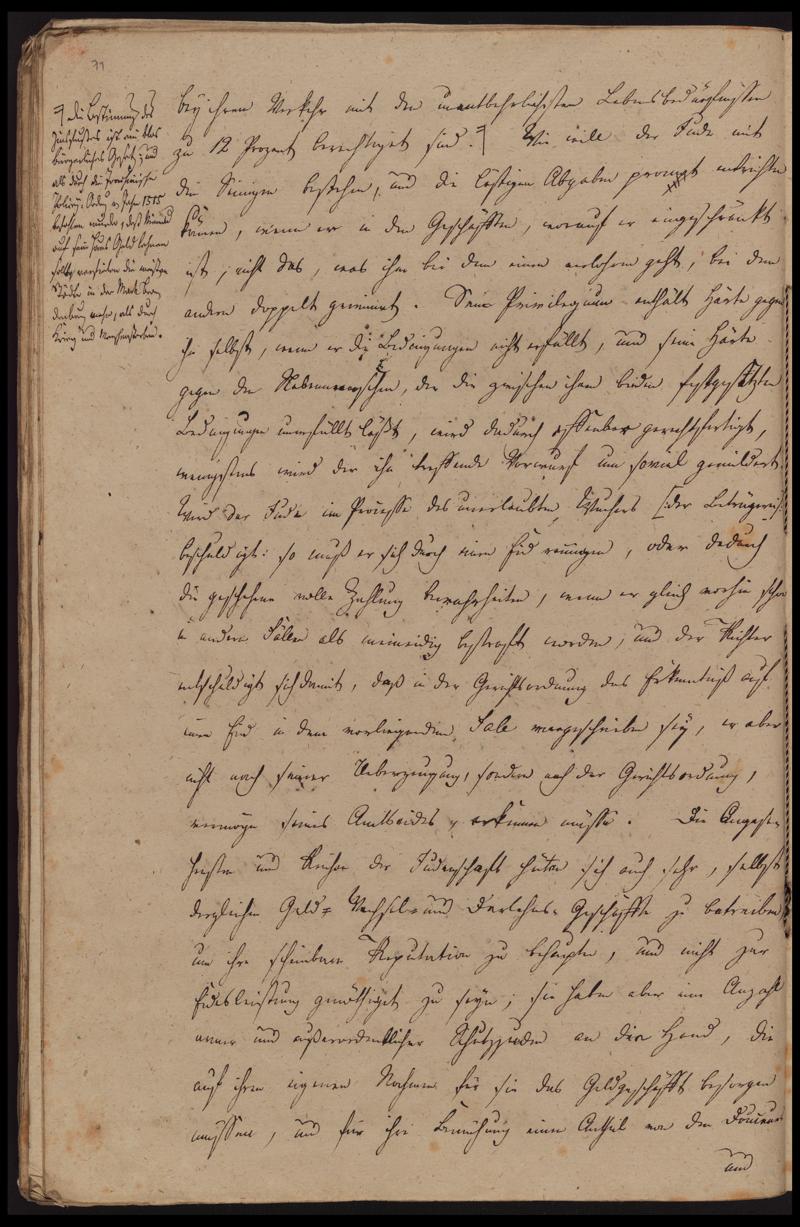 71
╒ die Bestimmung des
Zinsfußes ist ein blos
bürgerliches Gesetz; und
als durch die
Polizei-Ordn. v. Jahr 1515
befohlen wurde, daß Niemand
auf sein Haus Geld lehnen
sollte, verfielen die meisten
Städte in der Mark Bran-
denburg mehr, als durch
Krieg und Menschensterben.
bey ihrem Verkehr mit den unentbehrlichsten Lebensbedürfnissen
zu 12 Prozent berechtiget sind. Wie will der Jude mit
den Seinigen bestehen, und die lästigen Abgaben prompt entrichten
können, wenn er in den Geschäften, worauf er eingeschränkt
ist, nicht das, was ihm bei dem einen verlohren geht, bei dem
andern doppelt gewinnt. Sein Privilegium enthält Härte gegen
ihn selbst, wenn er die Bedingungen nicht erfüllt, und seine Härte
gegen den Nebenmenschen, der die zwischen ihnen beiden festgesetzten
Bedingungen unerfüllt läßt, wird dadurch offenbar gerechtfertigt,
wenigstens wird der ihn treffende Vorwurf um soviel gemildert.
Wird der Jude im Prozesse des unerlaubten Wuchers oder Betrügerei
beschuldigt: so muß er sich durch einen Eid reinigen, oder dadurch
die geschehene volle Zahlung bewahrheiten, wenn er gleich vorhin schon
in andern Fällen als meineidig bestraft worden; und der Richter
entschuldigt sich damit, daß in der Gerichtsordnung das Erkenntniß auf
einen Eid in dem vorliegenden Falle vorgeschrieben sey, er aber
nicht nach seiner Ueberzeugung, sondern nach der Gerichtsordnung,
vermöge seines Amtseides, erkennen müsse. Die Angese-
hensten und Reichen der Judenschaft hüten sich auch sehr, selbst
dergleichen Geld- Wechsel- und Darlehns-Geschäffte zu betreiben
um ihre scheinbare Reputation zu behaupten, und nicht zur
Eidesleistung genöthiget zu seyn; sie haben aber eine Anzahl
armer und außerordentlicher Schutzjuden an der Hand, die
auf ihren eigenen Nahmen für sie das Geldgeschäfft besorgen
müssen, und für ihre Bemühung einen Antheil von den Douceurs
und